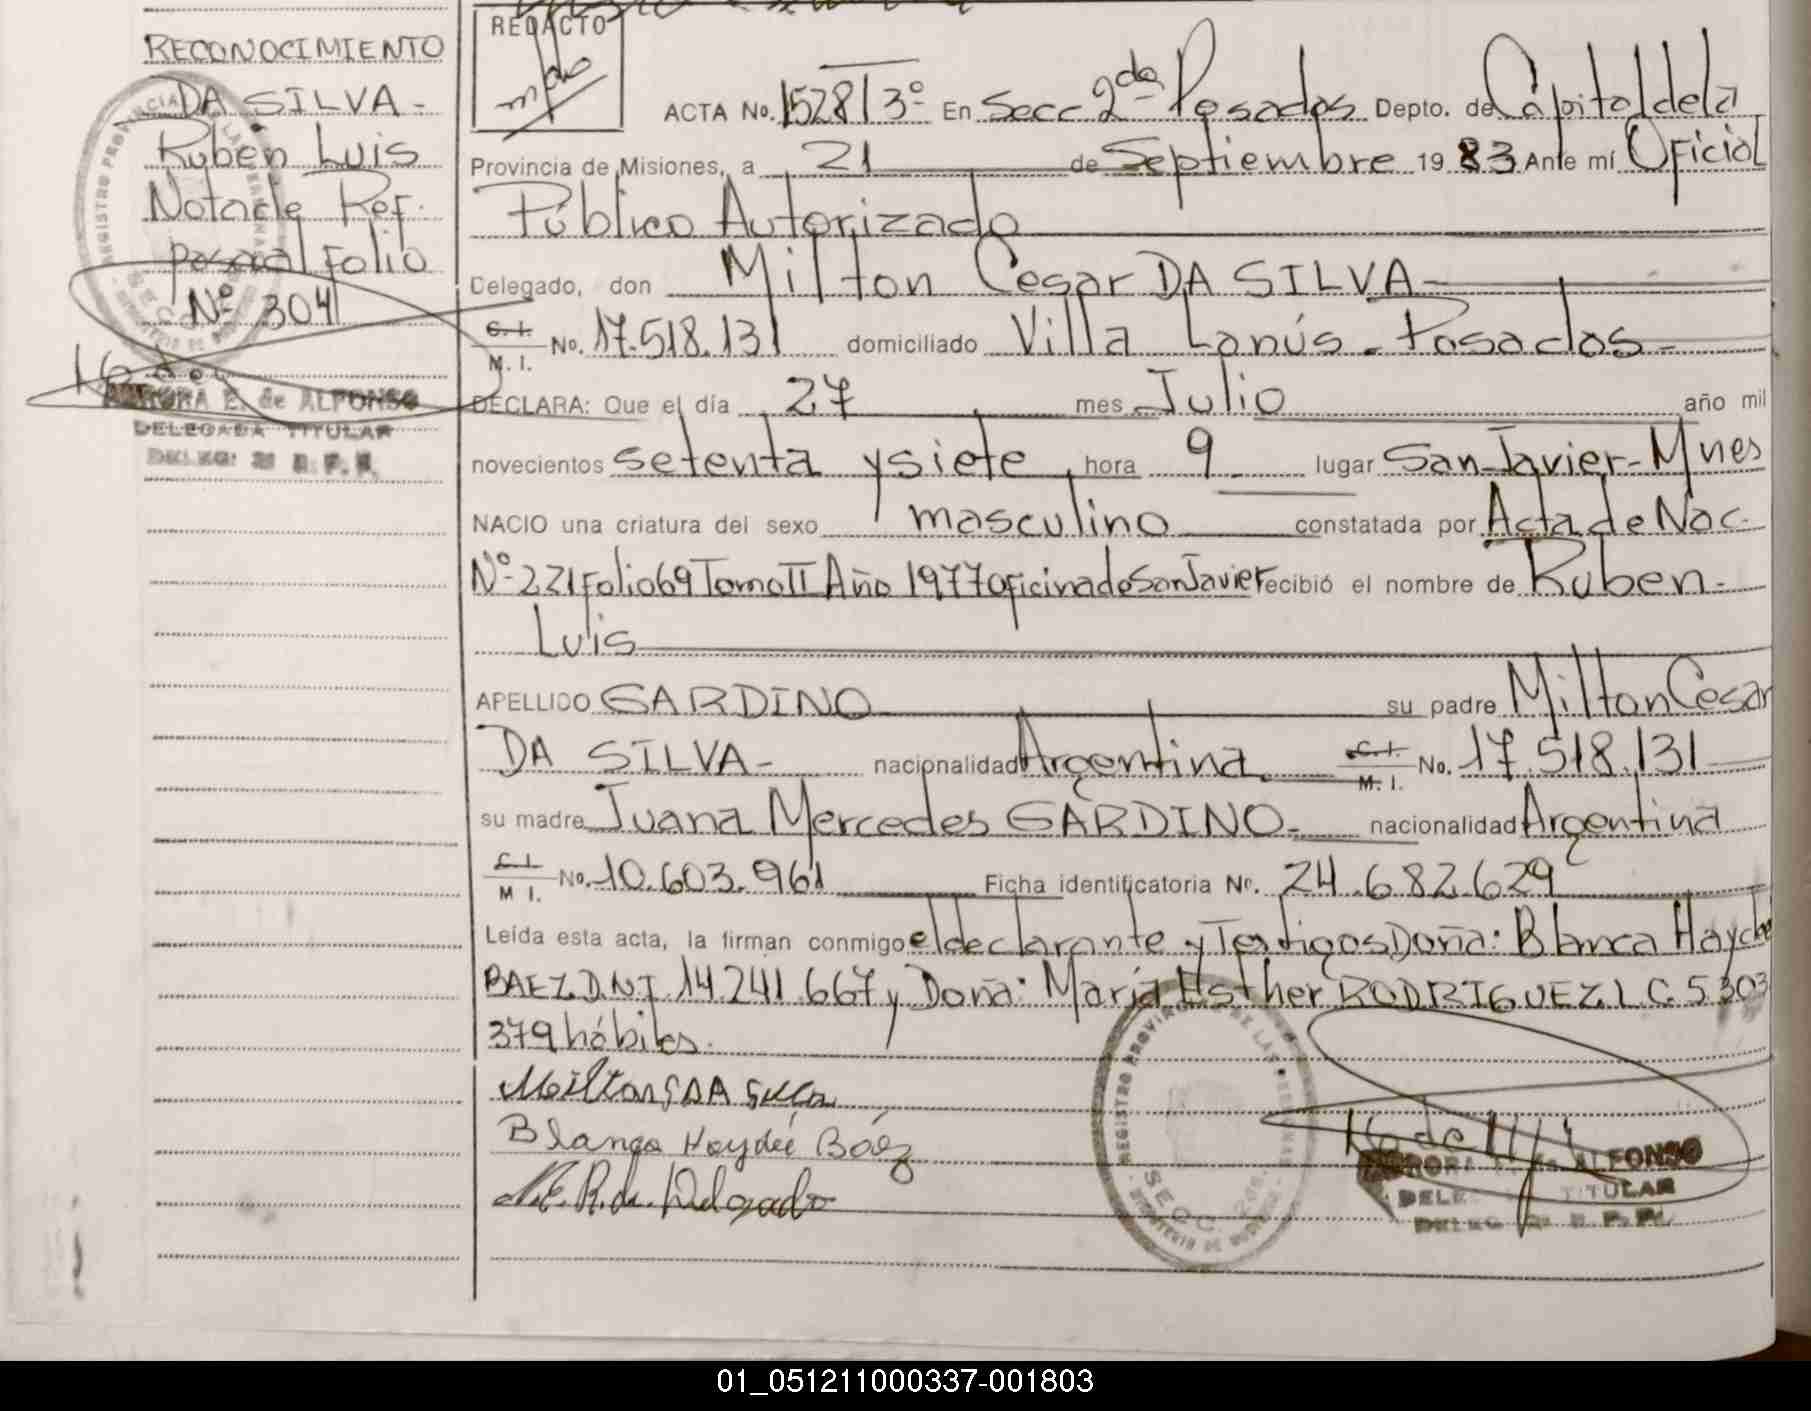 RECONOCIMIENTO
DA SILVA -
Ruben Luis
Nota de Ref.
pasa al Folio
Nº 304
AURORA E. de ALFONSO
DELEGADA TITULAR
REDACTO
ACTA No. 1528 T 3º En Secc 2da Posadas Depto. de Capital de la
Provincia de Misiones, a 21 de Septiembre 1983 Ante mí Oficial
Público Autorizado
Delegado, don Milton Cesar DA SILVA -
C. I. M. I. No. 17.518.131 domiciliado Villa Lanús - Posadas -
DECLARA: Que el día 27 mes Julio año mil
novecientos setenta y siete hora 9 lugar San Javier - Mnes
NACIO una criatura del sexo masculino constatada por Acta de Nac.
Nº 221 Folio 69 Tomo II Año 1977 oficina de San Javier recibió el nombre de Ruben
Luis
APELLIDO GARDINO su padre Milton Cesar
DA SILVA - nacionalidad Argentina C. I. M. I. No. 17.518.131
su madre Juana Mercedes GARDINO - nacionalidad Argentina
C. I. M I. No. 10.603.961 Ficha identificatoria Nº. 24.682.629
Leída esta acta, la firman conmigo el declarante y Testigos Doña: Blanca Hayde
BAEZ D.N.I. 14.241.667 y Doña: María Esther RODRIGUEZ L.C. 5.303
379 hábiles.
Milton C DA Silva
Blanca Haydeé Báez
M.E.R. de Delgado
REGISTRO PROVINCIAL DE LAS PERSONAS
SECC. 2da.
MINISTERIO DE GOBIERNO
AURORA E. de ALFONSO
DELEGADA TITULAR
01_051211000337-001803